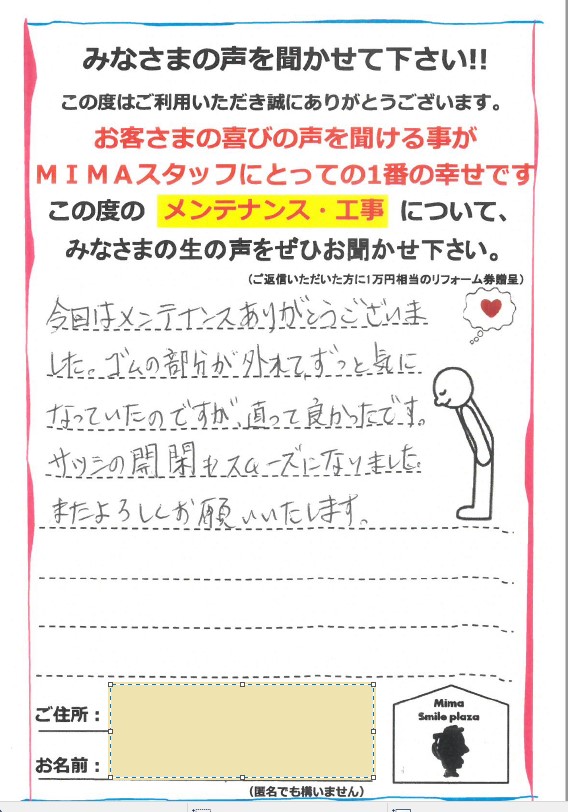 みなさまの声を聞かせて下さい!!
この度はご利用いただき誠にありがとうございます。
お客さまの喜びの声を聞ける事が
MIMAスタッフにとっての1番の幸せです
この度の メンテナンス・工事 について、
みなさまの生の声をぜひお聞かせ下さい。
(ご返信いただいた方に1万円相当のリフォーム券贈呈)
今回はメンテナンスありがとうございま
した。ゴムの部分が外れて、ずっと気に
なっていたのですが、直って良かったです。
サッシの開閉もスムーズになりました。
またよろしくお願いいたします。
ご住所：
お名前：
(匿名でも構いません)
Mima
Smile plaza